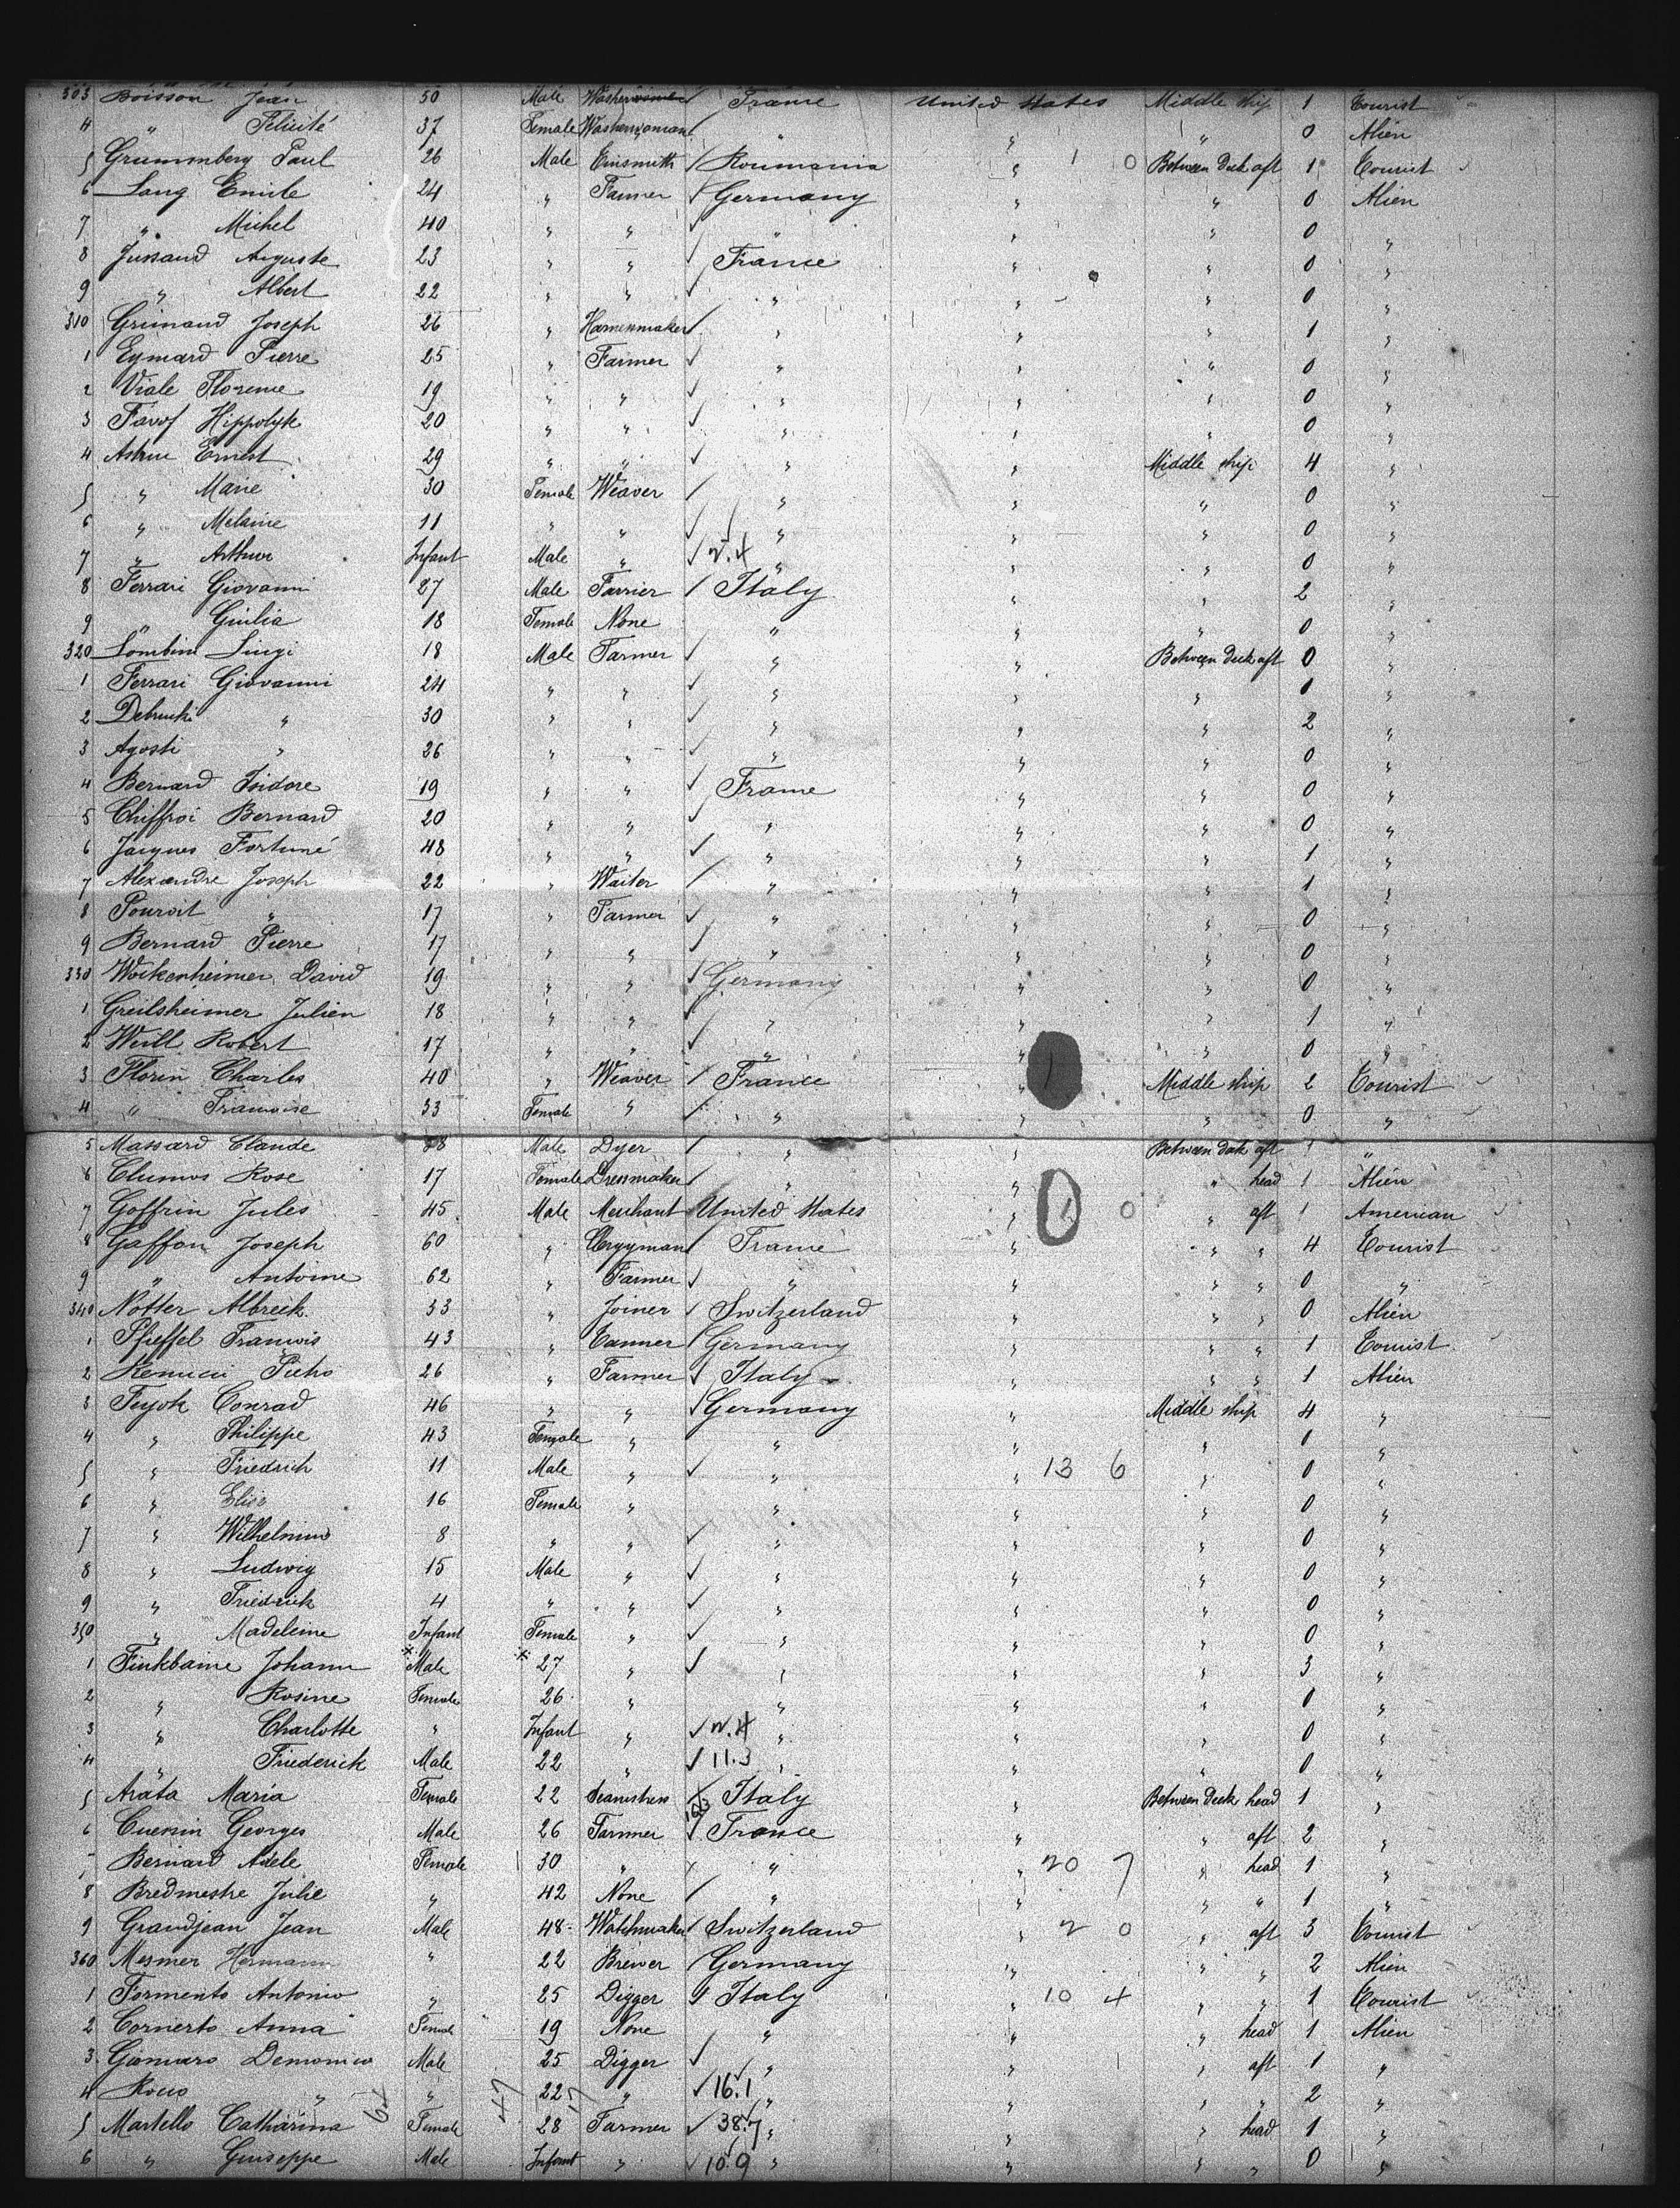 303 Boisson Jean 50 Male Washerwoman France United States Middle ship 1 Tourist
4 " Félicité 37 Female Washerwoman " " " 0 Alien
5 Grummberg Paul 26 Male Tinsmith Roumania " 1 0 Between deck aft 1 Tourist
6 Lang Emile 24 " Farmer Germany " " 0 Alien
7 " Michel 40 " " " " " 0 "
8 Jussaud Auguste 23 " " France " " 0 "
9 " Albert 22 " " " " " 0 "
310 Grimaud Joseph 26 " Harnessmaker " " " 1 "
1 Eymard Pierre 25 " Farmer " " " 0 "
2 Viale Florence 19 " " " " " 0 "
3 Hippolyte 20 " " " " " 0 "
4 Astruc Ernest 29 " " " " Middle ship 4 "
5 " Marie 30 Female Weaver " " " 0 "
6 " Melanie 11 " " " " " 0 "
7 " Arthur Infant Male " " " " 0 "
8 Ferrari Giovanni 27 Male Farrier Italy " " 2 "
9 " Giulia 18 Female None " " " 0 "
320 Lombini Luigi 18 Male Farmer " " Between deck aft 0 "
1 Ferrari Giovanni 24 " " " " " 1 "
2 " 30 " " " " " 2 "
3 Agosti " 26 " " " " " 0 "
4 Bernard Isidore 19 " " France " " 0 "
5 Chiffroi Bernard 20 " " " " " 0 "
6 Jacques Fortuné 48 " " " " " 1 "
7 Alexandre Joseph 22 " Waiter " " " 1 "
8 Pouroit " 17 " Farmer " " " 0 "
9 Bernard Pierre 17 " " " " " 0 "
330 Wockenheimer David 19 " " Germany " " 0 "
1 Greilsheimer Julien 18 " " " " " 1 "
2 Weill Robert 17 " " " " " 0 "
3 Florin Charles 40 " Weaver France " Middle ship 2 Tourist
4 " Francoise 33 Female " " " " 0 "
5 Massard Claude 28 Male Dyer " " Between deck aft 1 "
6 Clumos Rose 17 Female Dressmaker " " " head 1 Alien
7 Goffrin Jules 45 Male Merchant United States " 1 0 " aft 1 American
8 Gaffon Joseph 60 " Clergyman France " " " 4 Tourist
9 " Antoine 62 " Farmer " " " " 0 "
340 Notter Albreck 33 " Joiner Switzerland " " " 0 Alien
1 Pfieffel François 43 " Tanner Germany " " " 1 Tourist
2 Pietro 26 " Farmer Italy " " " 1 Alien
3 Conrad 46 " " Germany " Middle ship 4 "
4 " Philippe 43 Female " " " " 0 "
5 " Friedrich 11 Male " " " 13 6 " 0 "
6 " Elise 16 Female " " " " 0 "
7 " Wilhelmine 8 " " " " " 0 "
8 " Ludwig 15 Male " " " " 0 "
9 " Friedrich 4 " " " " " 0 "
350 " Madeleine Infant Female " " " " 0 "
1 Finkbaine Johann Male 27 " " " " 3 "
2 " Rosine Female 26 " " " " 0 "
3 " Charlotte " Infant " " " " 0 "
4 " Friederick Male 22 " 11.3 " " " 0 "
5 Arata Maria Female 22 Seamstress Italy " Between deck head 1 "
6 Cuenin Georges Male 26 Farmer France " " aft 2 "
7 Bernard Adele Female 30 " " " 20 7 " head 1 "
8 Bredmestre Julie " 42 None " " " " 1 "
9 Grandjean Jean Male 48 Watchmaker Switzerland " 2 0 " aft 3 Tourist
360 Mesmer Hermann " 22 Brewer Germany " " " 2 Alien
1 Formento Antonio " 25 Digger Italy " 10 4 " " 1 Tourist
2 Cornerto Anna Female 19 None " " " head 1 Alien
3 Giomaro Demonico Male 25 Digger " " " aft 1 "
4 Rocco " " 22 " 16.1 " " " " 2 "
5 Martello Catharina Female 28 Farmer 38.7 " " " head 1 "
6 " Giuseppe Male Infant " 10.9 " " " " 0 "